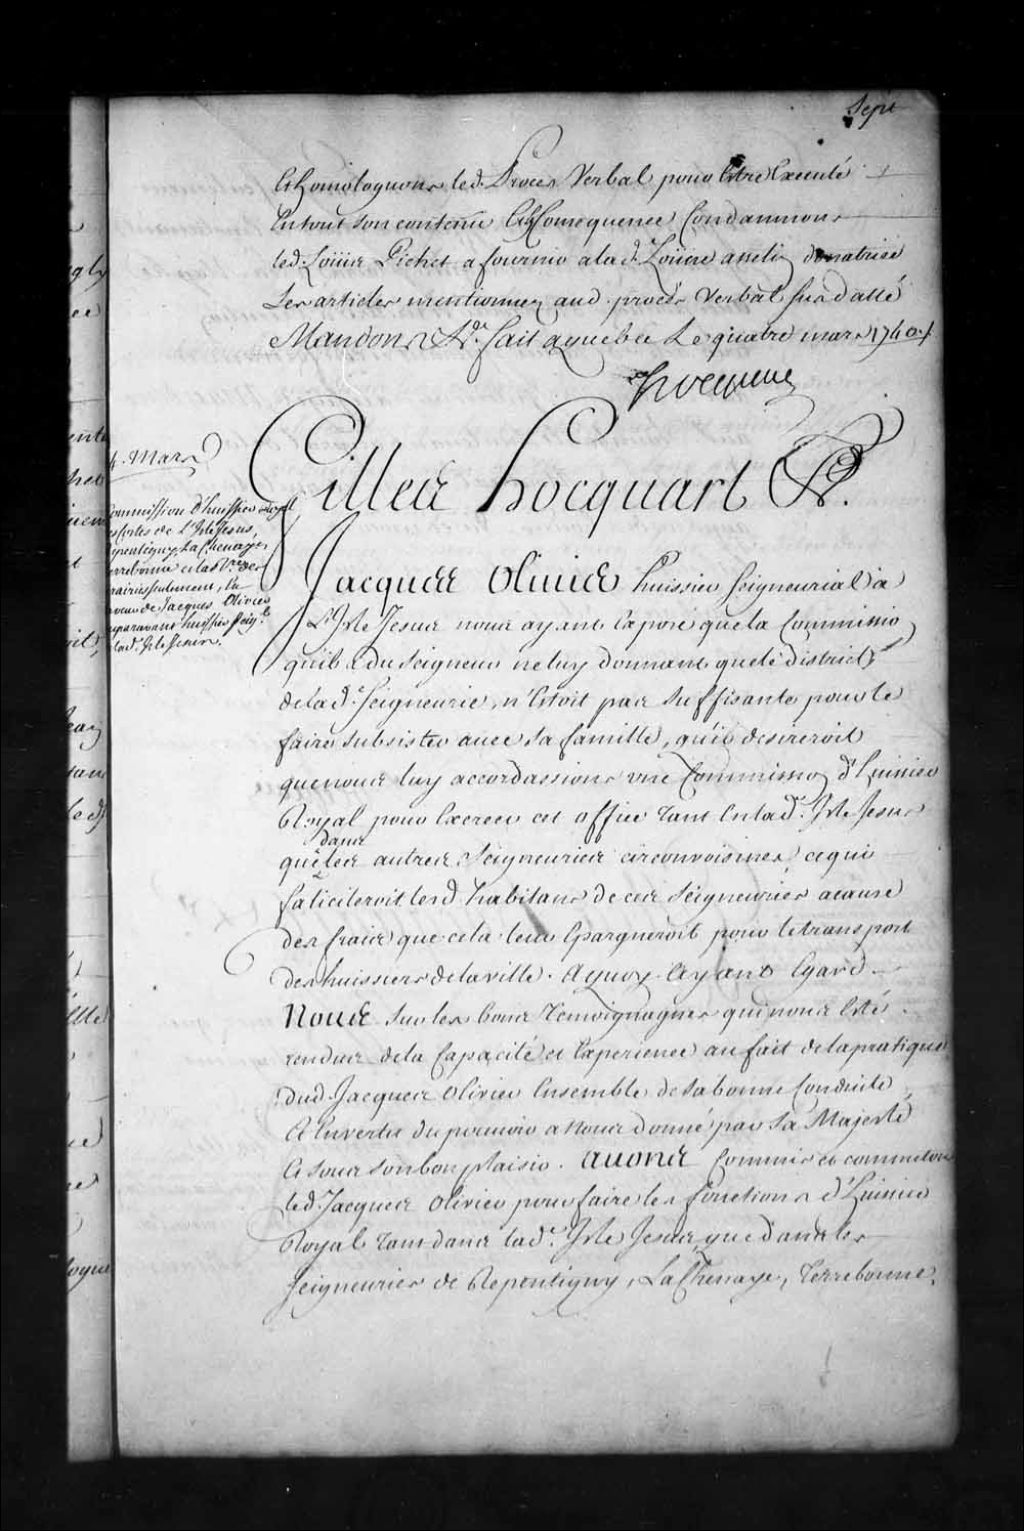 Sept
Et homologuons led. Procés Verbal pour Estre Executé
En tout son contenu Et En Consequence Condamnons
led. Louis Pichet a fournir a lad.e Louise asselin sa matrise
Les articles mentionnez aud. procés Verbal susdatté
Mandons &c.a fait a quebec Le quatre mars 1740 ./.
Hocquart
4. Mars
Commission d'huissier Royal
es Costes de L'Isle Jesus,
Repentigny, La Chenaye,
Terrebonne et la
prairies seulement, En
faveur de Jacques Olivier
auparavant huissier Seig.l
de lad. Isle Jesus.
Gilles hocquart &c.
Jacques Olivier huissier Seigneurial a
L'Isle Jesus nous ayant Exposé que la Commission
qu'il a du Seigneur ne luy donnant que le district
de la d.e Seigneurie, n'Estoit pas suffisante pour le
faire subsister avec sa famille, qu'il desireroit
que nous luy accordassions une Commission d'huissier
Royal pour Exercer cet office tant En lad.e Isle Jesus
que dans les autres Seigneuries circonvoisines, ce qui
faliciteroit les d. habitans de ces Seigneuries a cause
des frais que cela leur Epargneroit pour le transport
des huissiers de la ville. A quoy Ayant Egard
Nous sur les bons Temoignages qui nous ont Esté
rendus de la Capacité et Experience au fait de la pratique
dud. Jacques Olivier Ensemble de sa bonne Conduite
Et En vertu du pouvoir a Nous donné par Sa Majesté
Et sous son bon plaisir. Avons Commis et commettons
led. Jacques Olivier pour faire les fonctions d'huissier
Royal tant dans lad.e Isle Jesus, que dans les
Seigneuries de Repentigny, La Chenaye, Terrebonne,